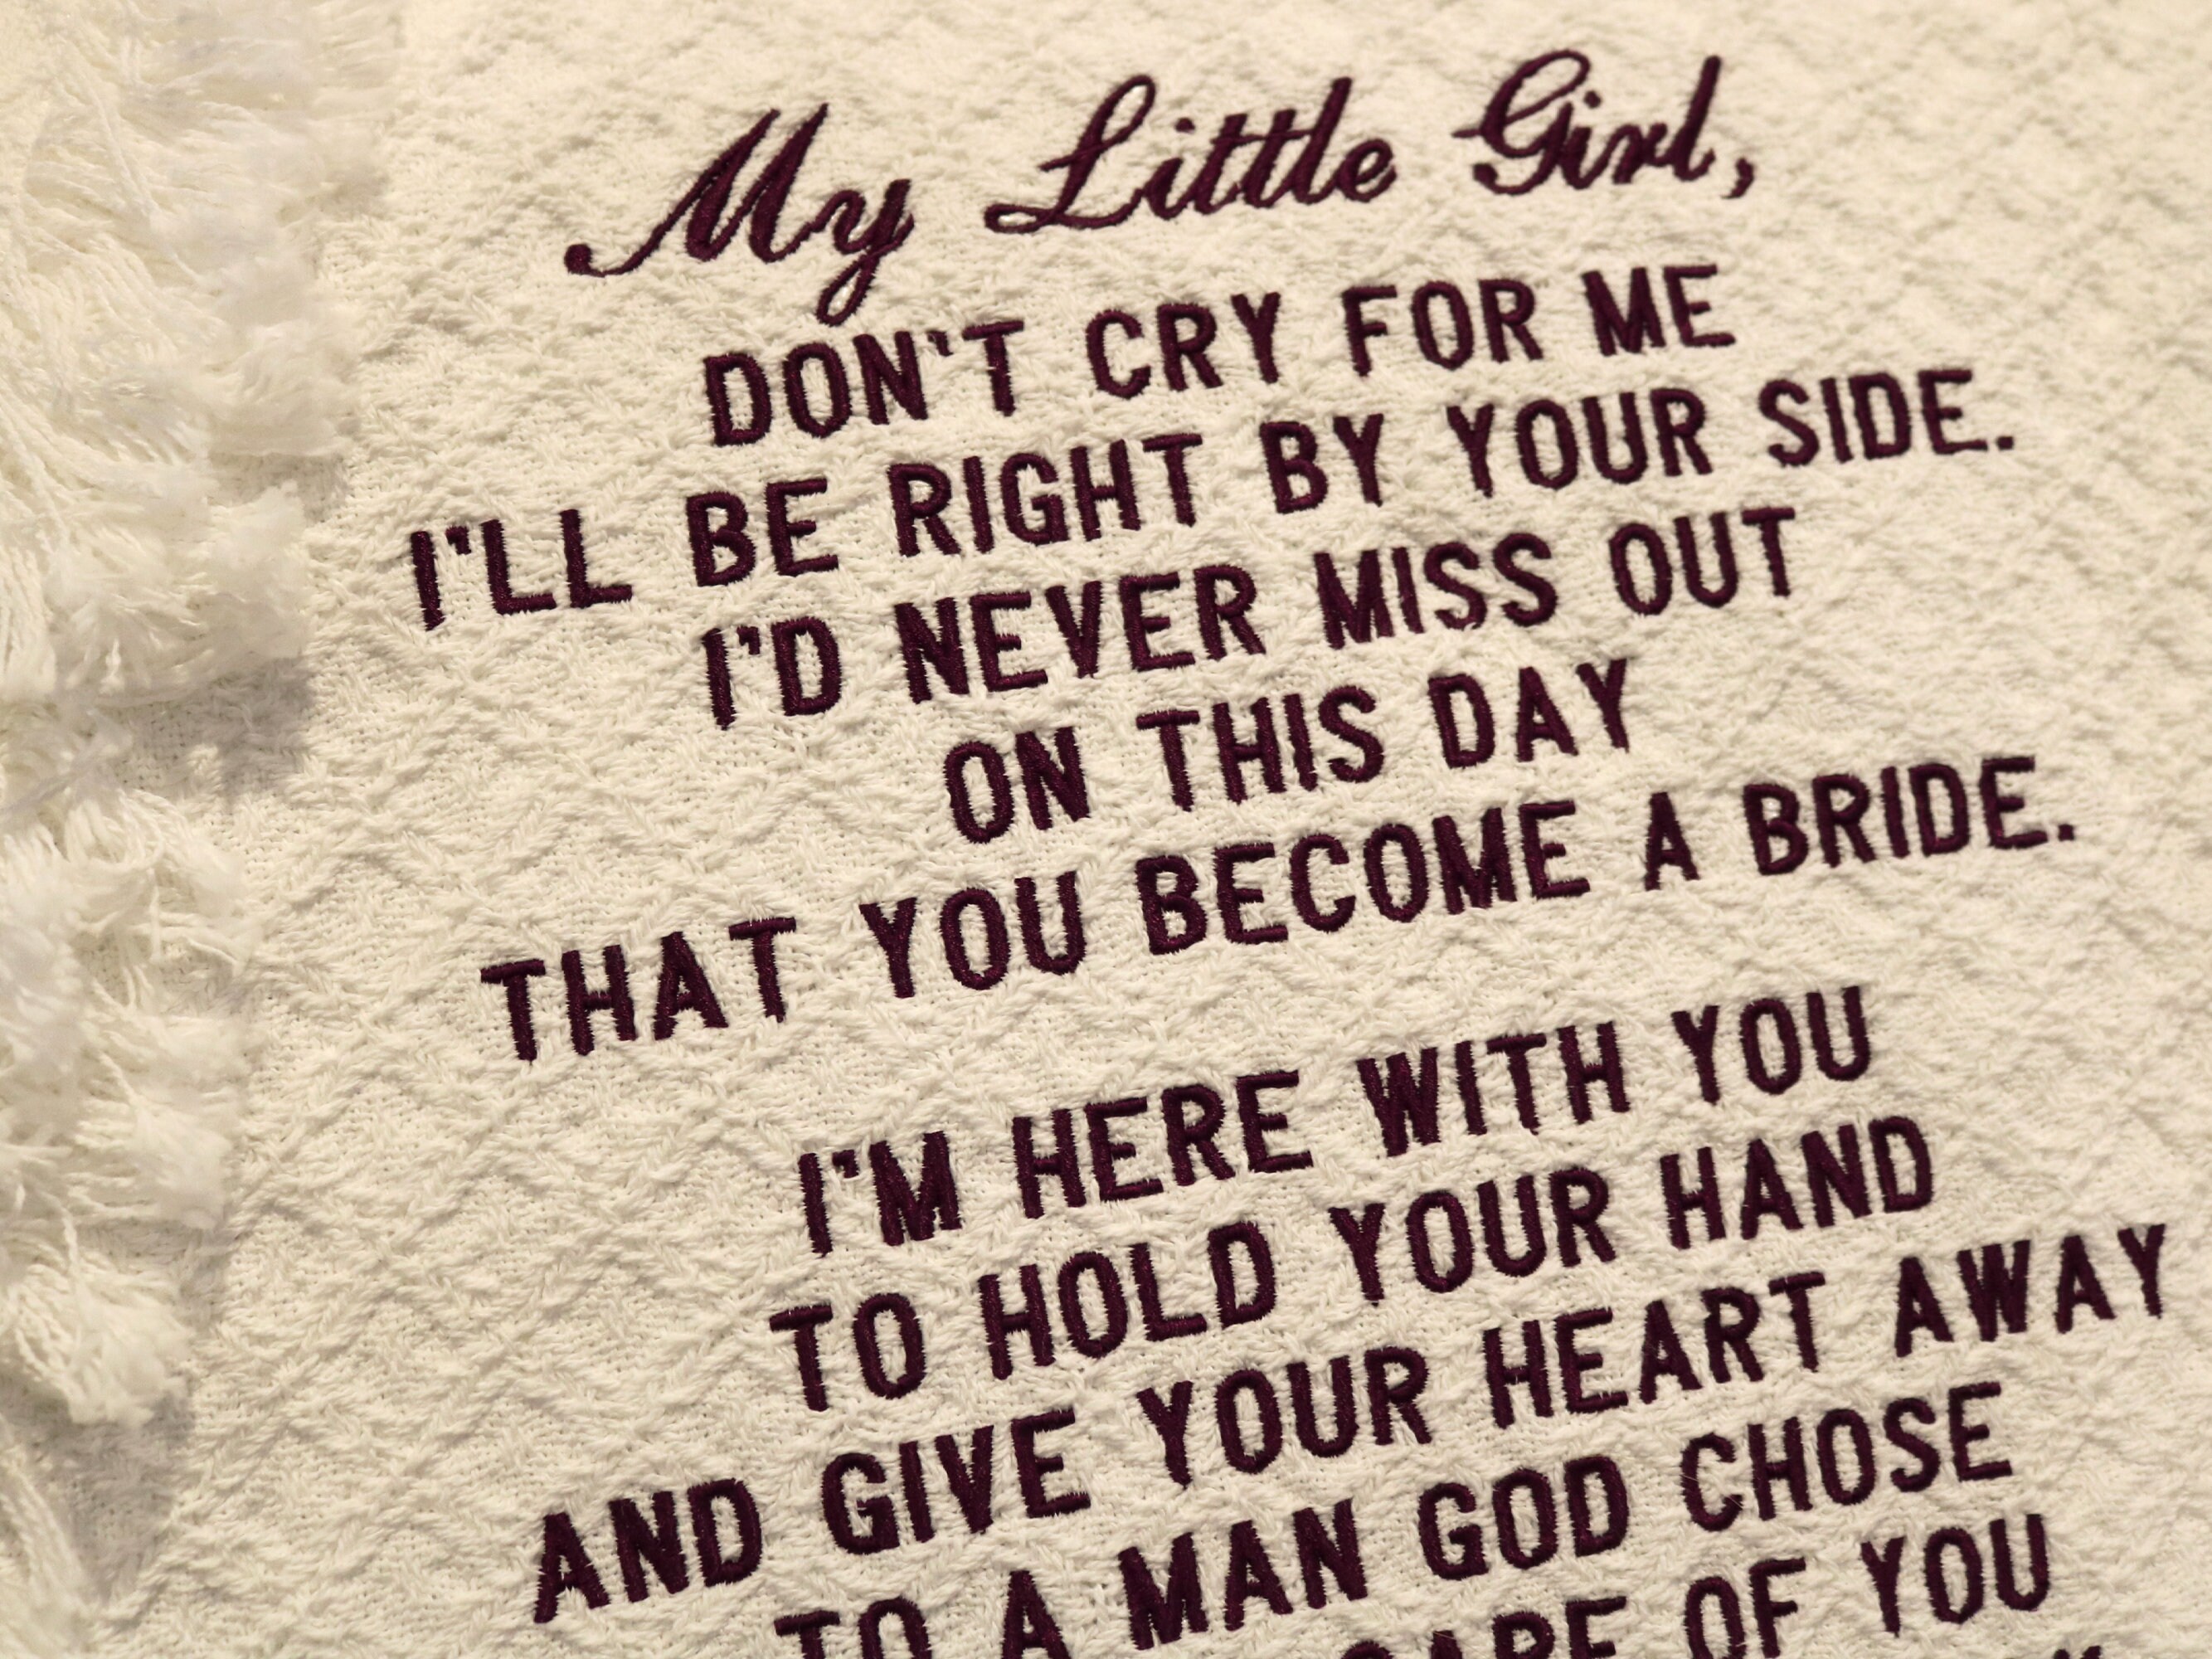 My Little Girl,
DON'T CRY FOR ME
I'LL BE RIGHT BY YOUR SIDE.
I'D NEVER MISS OUT
ON THIS DAY
THAT YOU BECOME A BRIDE.
I'M HERE WITH YOU
TO HOLD YOUR HAND
AND GIVE YOUR HEART AWAY
TO A MAN GOD CHOSE
CARE OF YOU